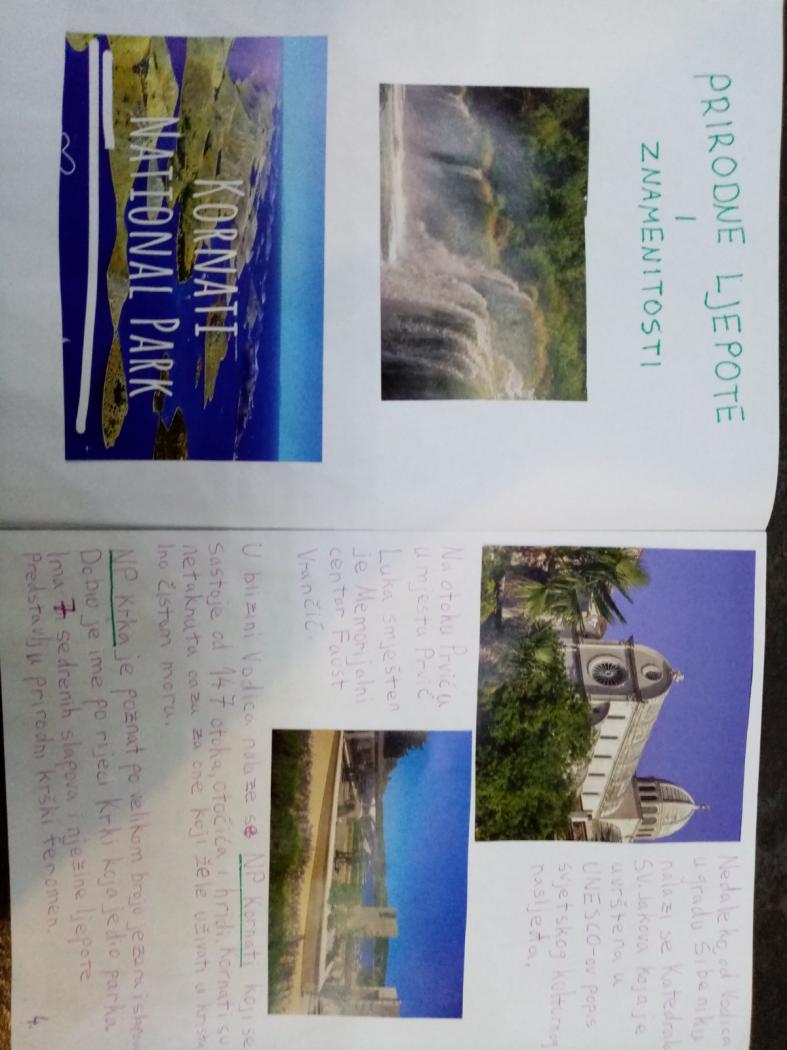 PRIRODNE LJEPOTE
I
ZNAMENITOSTI
KORNATI
NATIONAL PARK
Nedaleko, od Vodica
u gradu Šibeniku
nalazi se Katedrala
Sv. Jakova koja je
uvrštena u
UNESCO-ov popis
svjetskog kulturnog
nasljeđa.
Na otoku Prviću
u mjestu Prvić
Luka smješten
je Memorijalni
centar Faust
Vrančić.
U blizini Vodica nalaze se NP Kornati koji se
sastoje od 147 otoka, otočića i hridi. Kornati su
netaknuta oaza za one koji žele uživati u krista
lno čistom moru.
NP Krka je poznat po velikom broju jezera i slapova
Dobio je ime po rijeci Krki koja je dio parka
Ima 7 sedrenih slapova i njezine ljepote
predstavlju prirodni krški fenomen.
4.